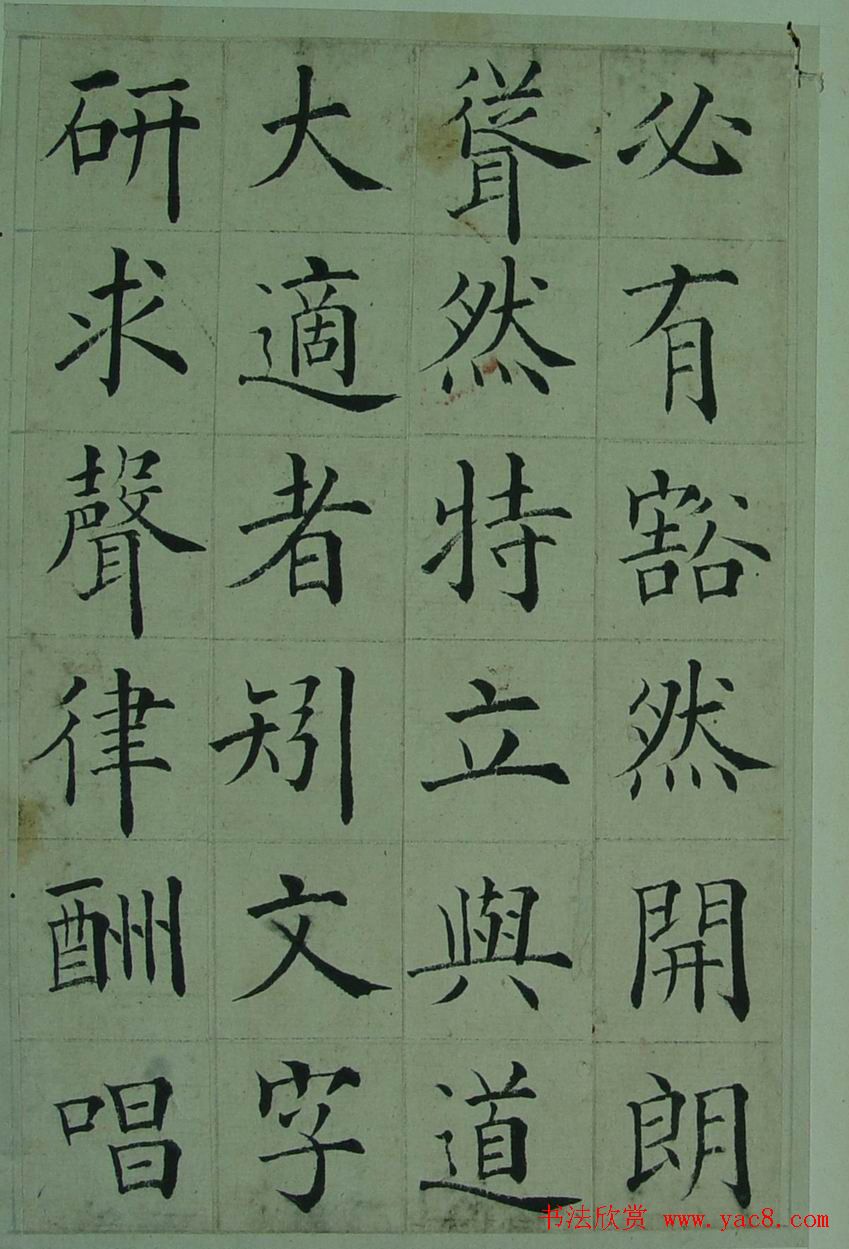 必有豁然開朗
聳然特立與道
大適者矧文字
研求聲律酬唱
书法欣赏 www.yac8.com